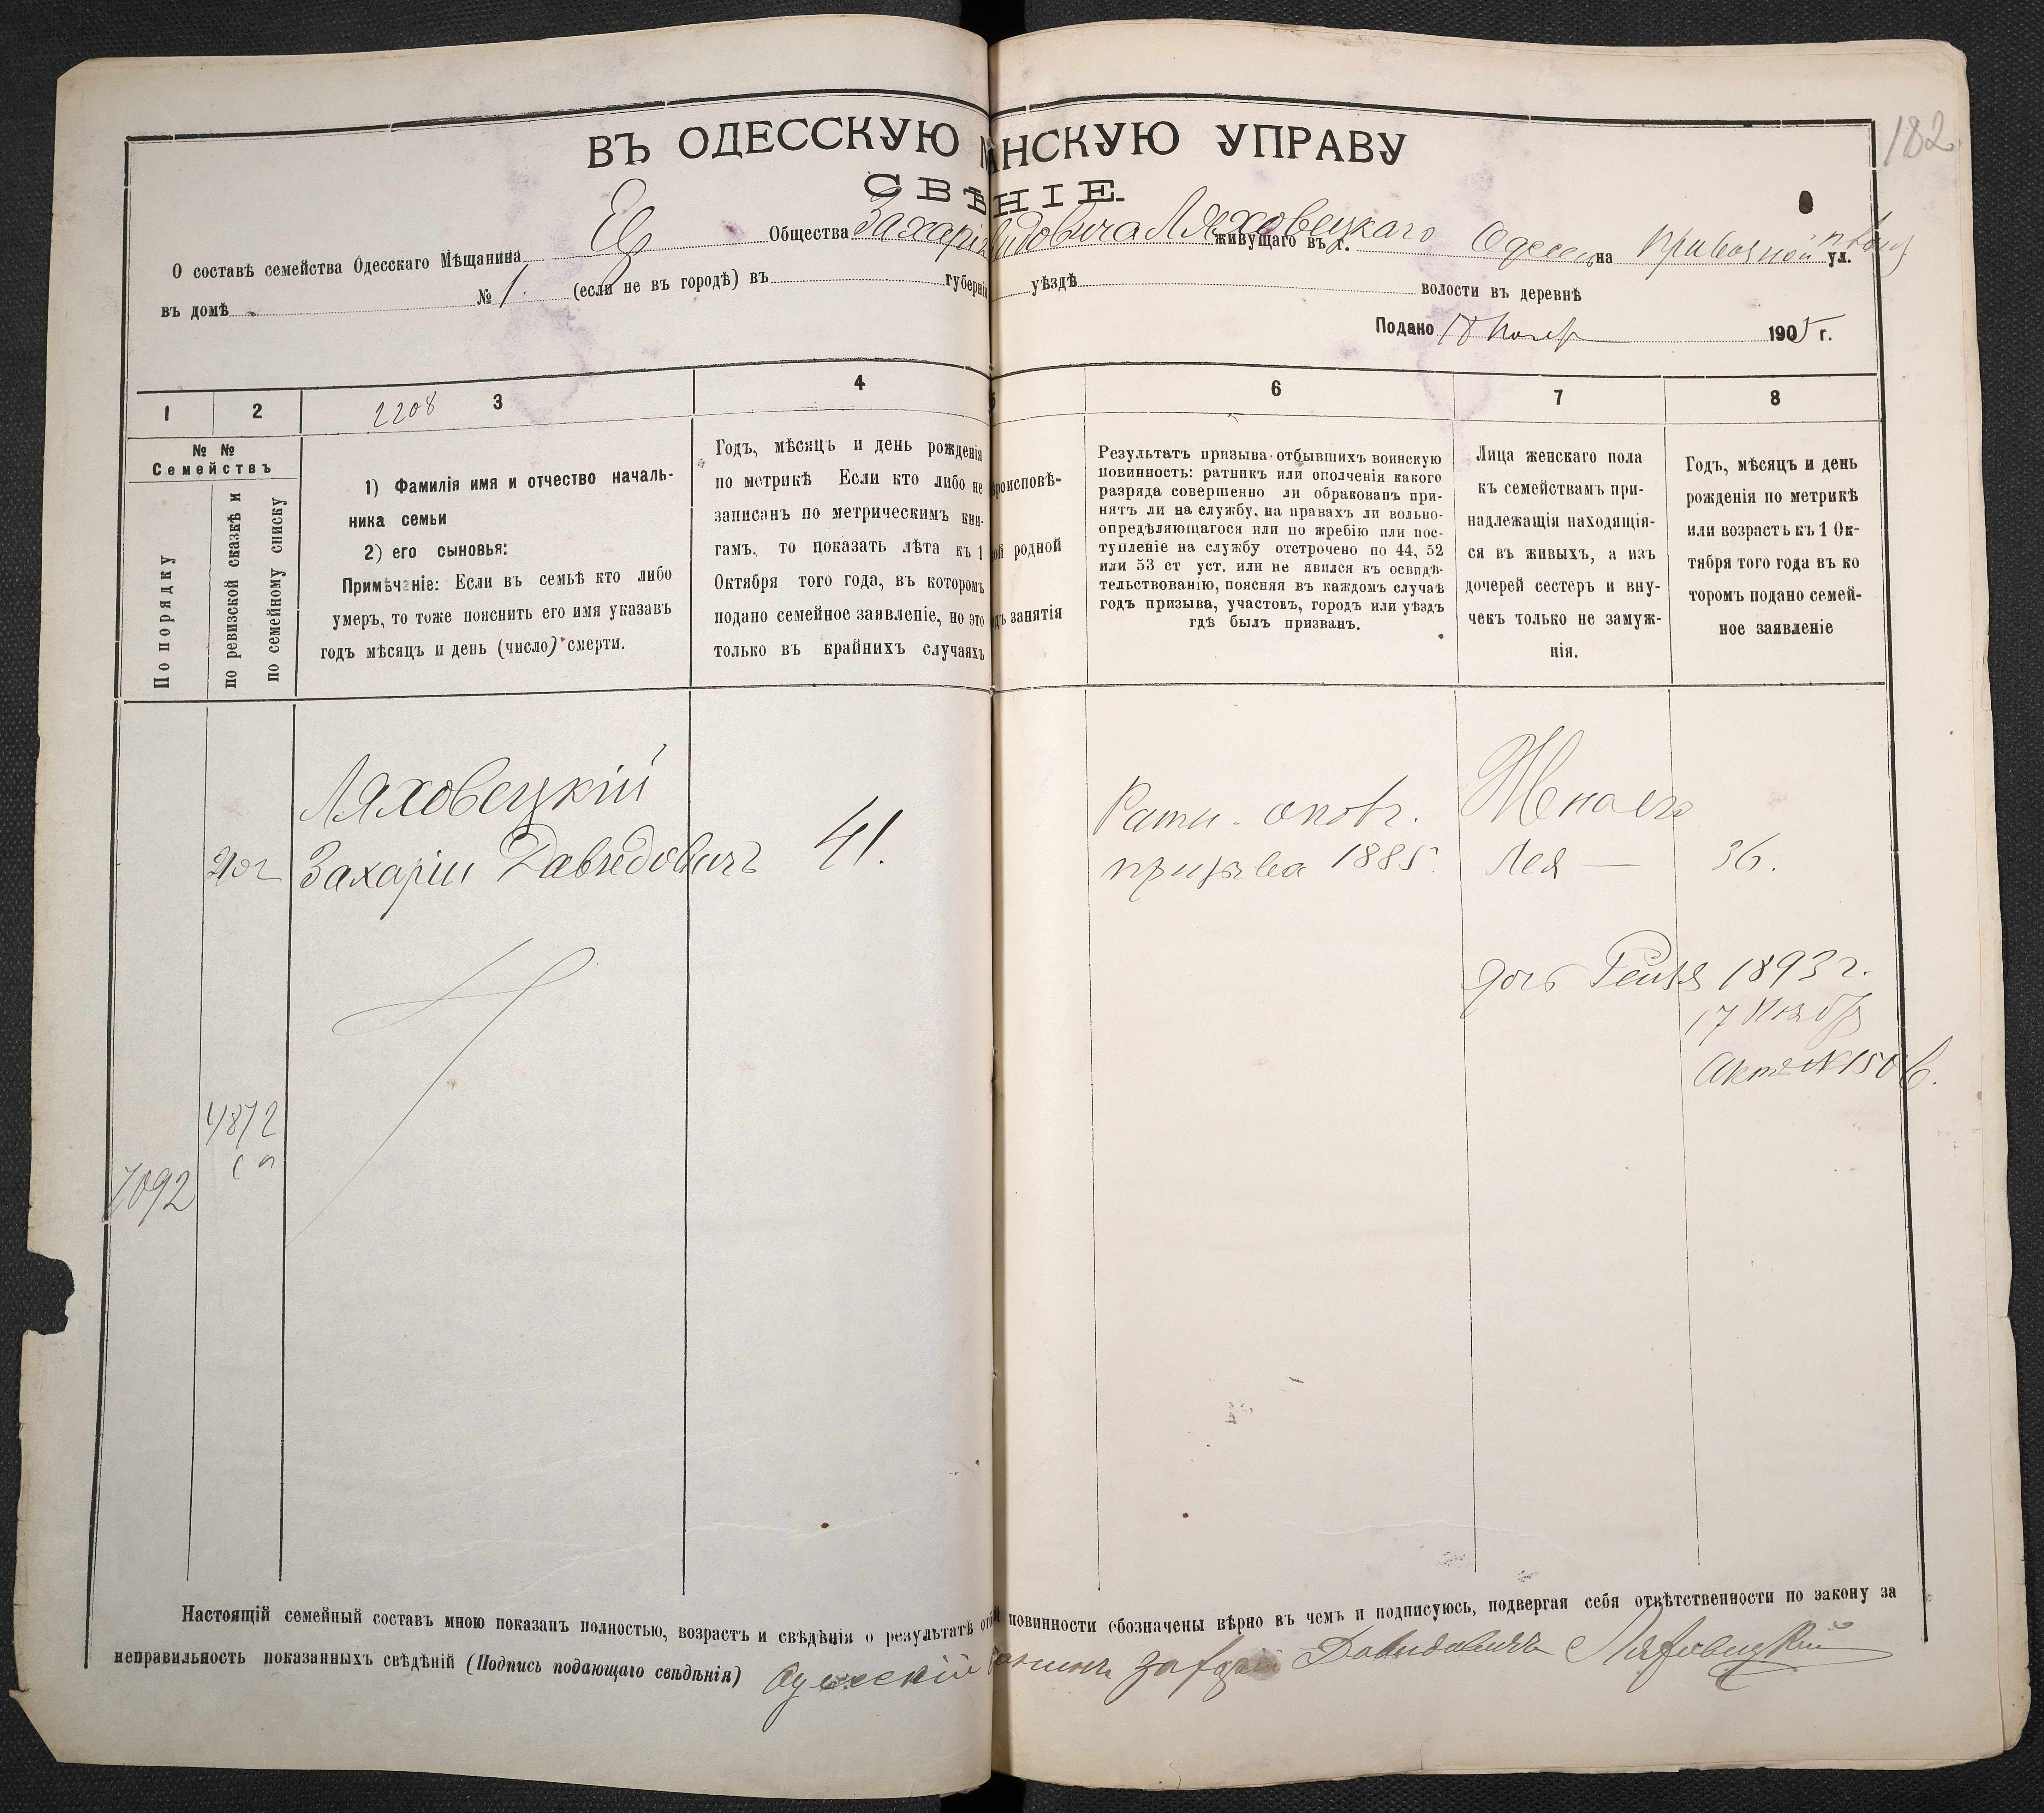 182
ВЪ ОДЕССКУЮ НСКУЮ УПРАВУ
СВѢ НІЕ.
О составѣ семейства Одесскаго Мѣщанина Общества Захарія идовича Ляховецкаго живущаго въ г. Одессѣ на Привозной площ ул.
въ домѣ № 1. (если не въ городѣ) въ губерніи уѣздѣ волости въ деревнѣ
Подано 18 Нояб 1905 г.
1 2 2208 3 4 6 7 8
№ №
Семействъ
По порядку
по ревизской сказкѣ и
по семейному списку
1) Фамилія имя и отчество началь-
ника семьи
2) его сыновья:
Примѣчаніе: Если въ семьѣ кто либо
умеръ, то тоже пояснить его имя указавъ
годъ мѣсяцъ и день (число) смерти.
Годъ, мѣсяцъ и день рожденія
по метрикѣ Если кто либо не
записанъ по метрическимъ кни-
гамъ, то показать лѣта къ 1
Октября того года, въ которомъ
подано семейное заявленіе, но это
только въ крайнихъ случаяхъ
роисповѣ-
ой родной
дъ занятія
Результатъ призыва отбывшихъ воинскую
повинность: ратникъ или ополченія какого
разряда совершенно ли обракованъ при-
нятъ ли на службу, на правахъ ли вольно-
опредѣляющагося или по жребію или пос-
тупленіе на службу отстрочено по 44, 52
или 53 ст уст. или не явился къ освидѣ-
тельствованію, поясняя въ каждомъ случаѣ
годъ призыва, участокъ, городъ или уѣздъ
гдѣ былъ призванъ.
Лица женскаго пола
къ семействамъ при-
надлежащія находящія-
ся въ живыхъ, а изъ
дочерей сестеръ и вну-
чекъ только не замуж-
нія.
Годъ, мѣсяцъ и день
рожденія по метрикѣ
или возрастъ къ 1 Ок-
тября того года въ ко
торомъ подано семей-
ное заявленіе
Ляховецкій
Захарій Давидовичъ 41.
Ратн. ополч.
призыва 1885.
Жена его
Лея — 36.
дочь Рейзя 1893 г.
17 Ноября
Актъ № 150
4872
7092
Настоящій семейный составъ мною показанъ полностью, возрастъ и свѣдѣнія о результатѣ от й повинности обозначены вѣрно въ чемъ и подписуюсь, подвергая себя отвѣтственности по закону за
неправильность показанныхъ свѣдѣній (Подпись подающаго свѣдѣнія) Одесскій Захарій Давидовичъ Ляховецкій